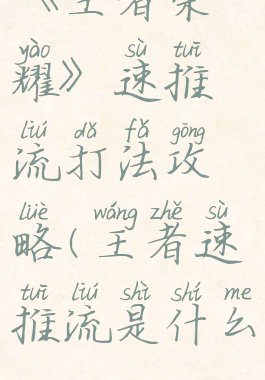 《王者荣
yào sù tuī
耀》速推
liú dǎ fǎ gōng
流打法攻
lüè wáng zhě sù
略(王者速
tuī liú shì shí me
推流是什么